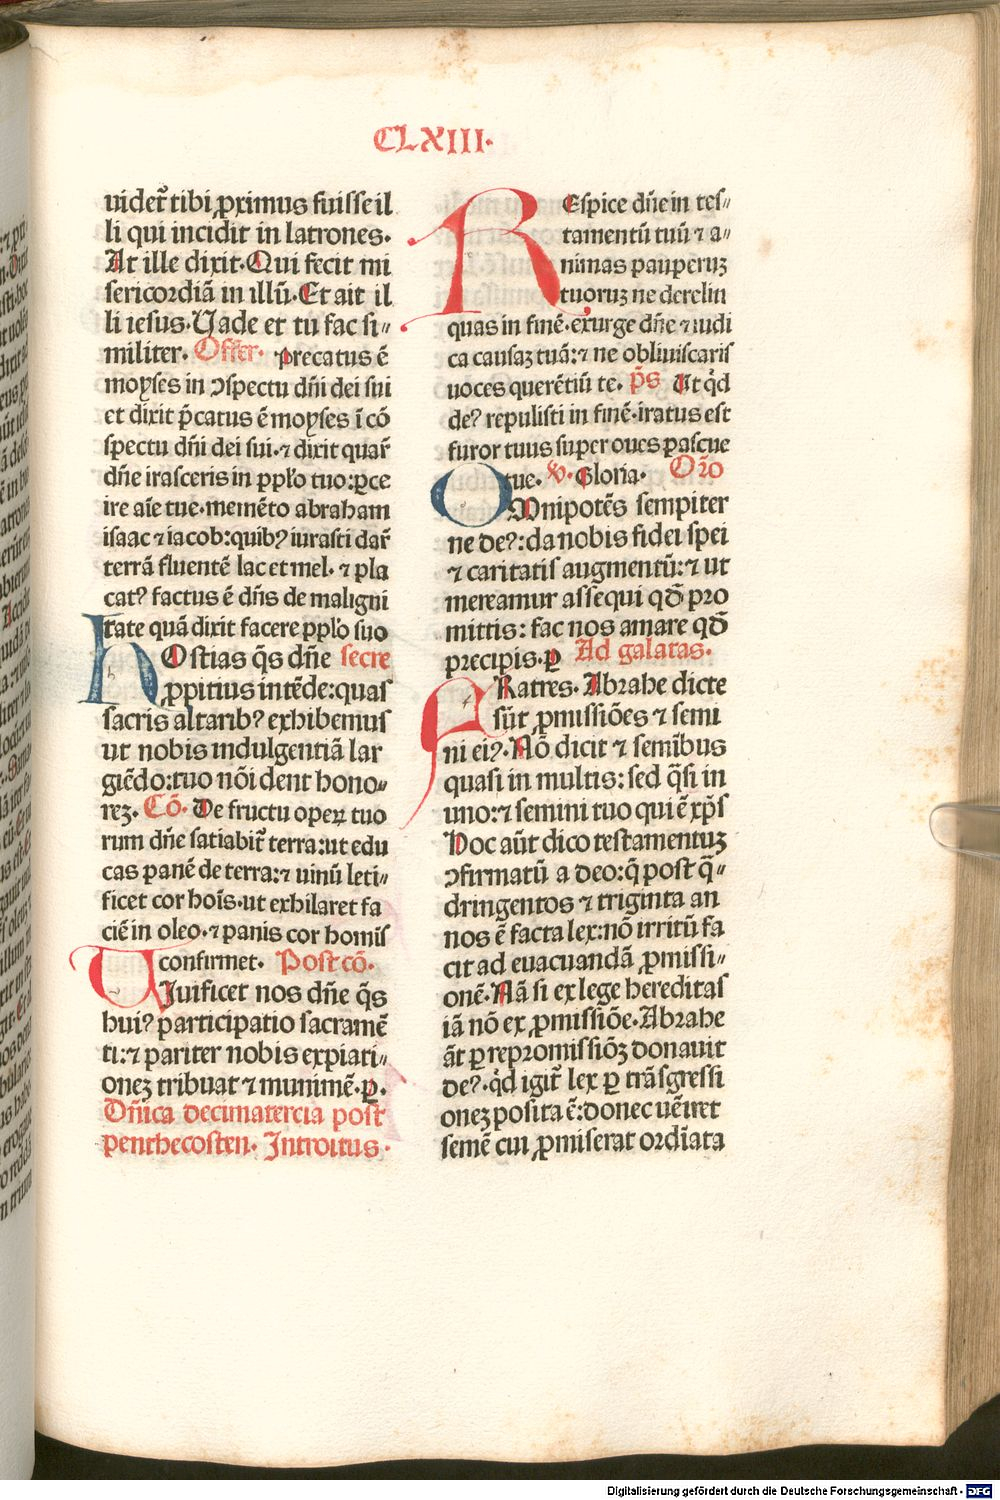 CLXIII·
uidet᷑ tibi ꝓximus fuisse il
li qui incidit in latrones.
At ille dixit·Qui fecit mi
sericordiā in illū·Et ait il
li iesus·Uade et tu fac si⸗
militer. Offer· precatus ē
moyses in ↄspectu dn̄i dei sui
et dixit p̄catus ē moyses ī cō
spectu dn̄i dei sui·⁊ dixit quar̄
dn̄e irasceris in pplo tuo:ꝑce
ire aīe tue·memēto abraham
isaac ⁊ iacob:quibꝰ iurāsti dar̄
terrā fluentē lac et mel· ⁊ pla
catꝰ factus ē dn̄s de maligni
tate quā dixit facere pplo suo
HOstias q̄s dn̄e secre
ꝓpitius intēde:quas
sacris altaribꝰ exhibemus
ut nobis indulgentiā lar
giēdo:tuo nōi dent hono⸗
reꝫ. Cō· De fructu operꝝ tuo
rum dn̄e satiabit᷑ terra:ut edu
cas panē de terra:⁊ uinū leti⸗
ficet cor hoīs·ut exhilaret fa
ciē in oleo·⁊ panis cor homis
confirmet· Post cō·
UIuificet nos dn̄e q̄s
huiꝰ participatio sacramē
ti:⁊ pariter nobis expiati⸗
oneꝫ tribuat ⁊ munimē·ꝑ.
Dn̄ica decimatercia post
penthecosten. Introitus·
REspice dn̄e in tes⸗
tamentū tuū ⁊ a⸗
nimas pauperuꝫ
tuoruꝫ ne derelin
quas in finē·exurge dn̄e ⁊ iudi
ca causaꝫ tuā:⁊ ne obliuiscaris
uoces querētiū te. p̄s Ut qͥd
deꝰ repulisti in finē·iratus est
furor tuus super oues pascue
tue. ꝟ· Gloria· Oro
OMnipotēs sempiter
ne deꝰ:da nobis fidei spei
⁊ caritatis augmentū:⁊ ut
mereamur assequi qđ pro
mittis: fac nos amare qđ
precipis.ꝑ Ad galatas·
FRatres. Abrahe dicte
sūt ꝓmissiões ⁊ semi
ni eiꝰ·Nō dicit ⁊ semībus
quasi in multis: sed q̄si in
uno:⁊ semini tuo qui ē xp̄s
Hoc aūt dico testamentuꝫ
ↄfirmatū a deo:q̄ post q̄⸗
dringentos ⁊ triginta an
nos ē facta lex:nō irritū fa
cit ad euacuandā ꝓmissi⸗
onē·Nā si ex lege hereditas
iā nō ex ꝓmissiōe·Abrahe
āt ꝑ repromissiōꝫ donauit
deꝰ·qͥd igit᷑ lex ꝑ trāsgressi
oneꝫ posita ē:donec uēiret
semē cui ꝓmiserat ordīata
Digitalisierung gefördert durch die Deutsche Forschungsgemeinschaft · DFG